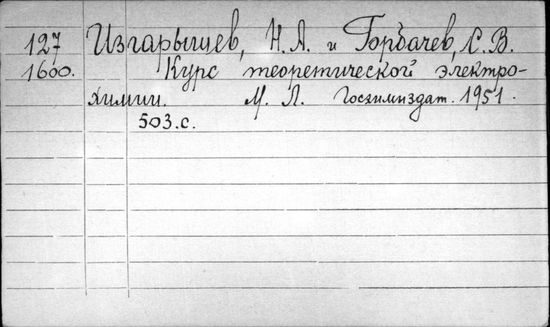 127 Изгарышев, Н.А. и Горбачев, С.В.
1600. Курс теоретической электро-
химии. М. Л. Госхимиздат. 1951.
503.с.